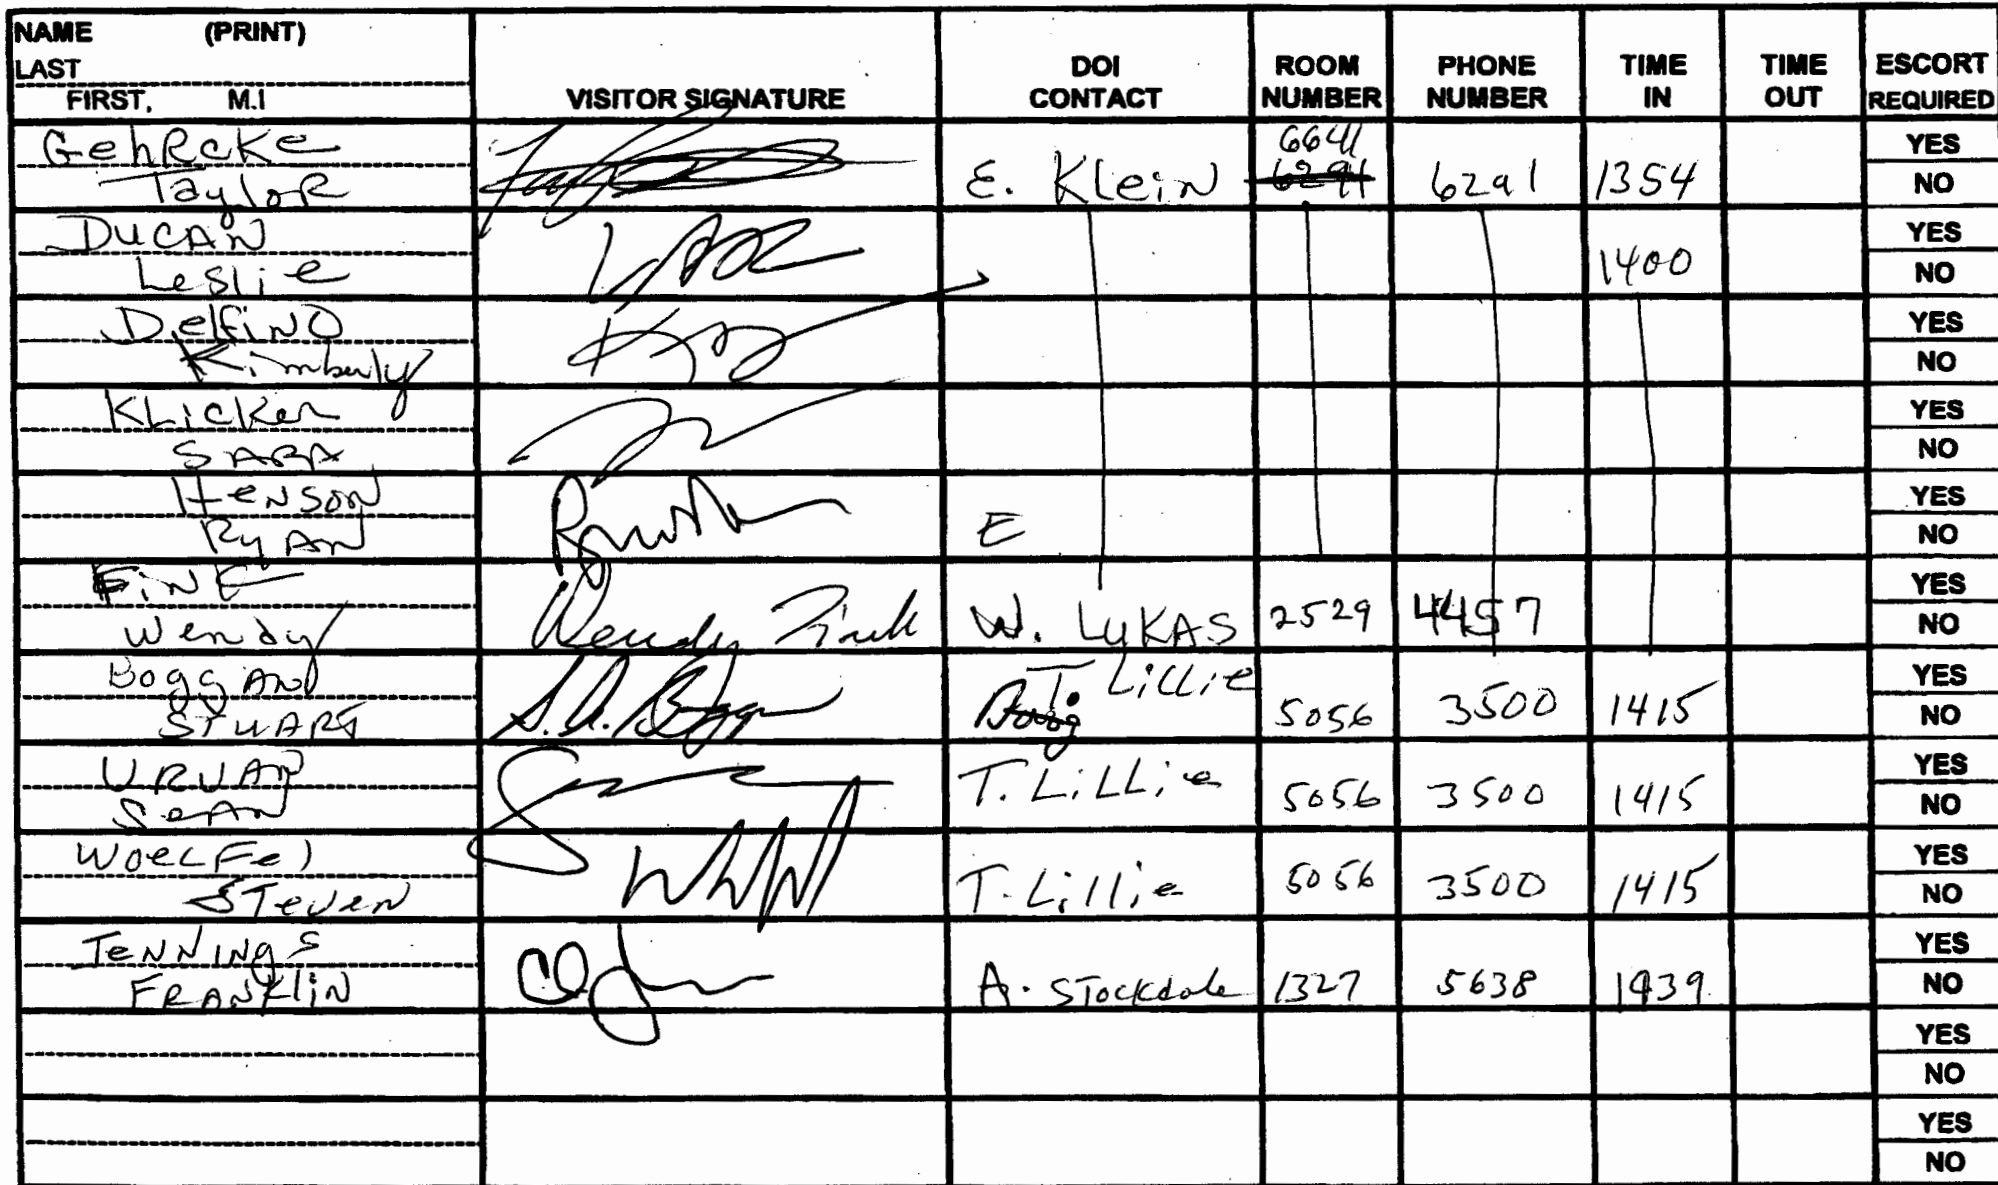 NAME (PRINT)
LAST
FIRST, M.I
VISITOR SIGNATURE
DOI CONTACT
ROOM NUMBER
PHONE NUMBER
TIME IN
TIME OUT
ESCORT REQUIRED
GehRcKe
Taylor
E. Klein
6641
6291
6291
1354
YES
NO
Ducan
Leslie
1400
YES
NO
Delfino
Kimberly
YES
NO
Klicker
SARA
YES
NO
Henson
Ryan
E
YES
NO
Fink
Wendy
Wendy Fink
W. LUKAS
2529
4457
YES
NO
Boggan
STUART
S.A. Boggan
T. Lillie
5056
3500
1415
YES
NO
URVAN
Sean
T. Lillie
5056
3500
1415
YES
NO
Woelfel
Steven
T. Lillie
5056
3500
1415
YES
NO
Jennings
Franklin
A. Stockdale
1327
5638
1439
YES
NO
YES
NO
YES
NO